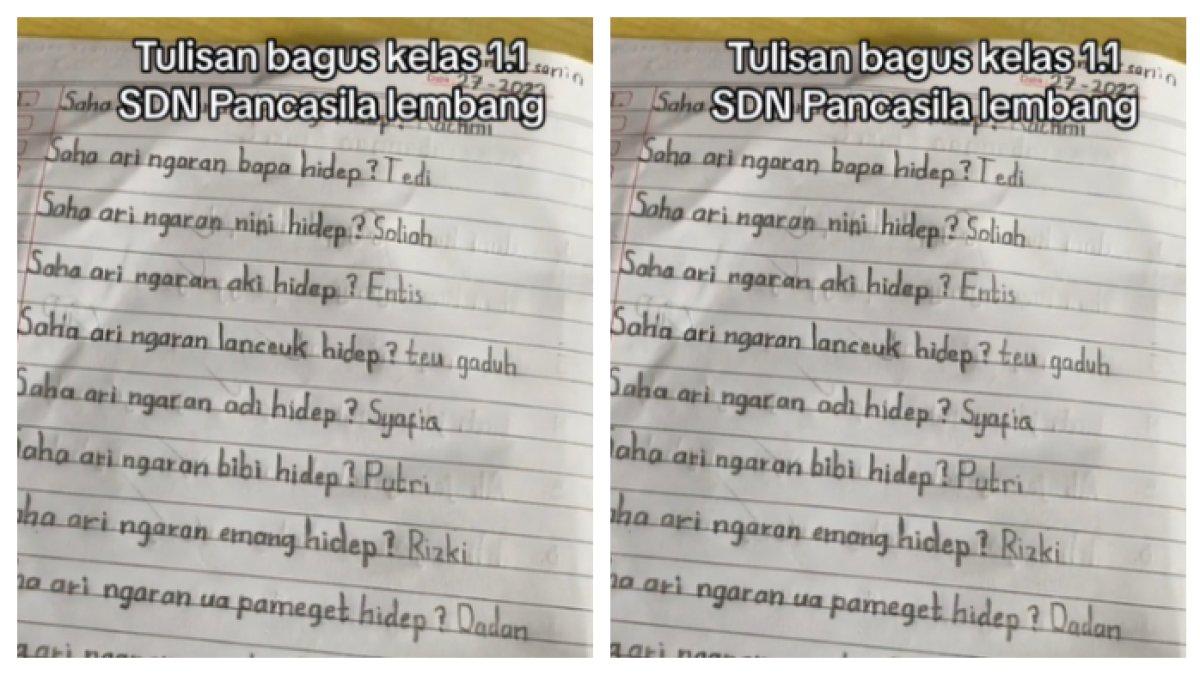 Tulisan bagus kelas 1.1
SDN Pancasila lembang
sanin
27-2023
Saha
Rachmi
Saha ari ngaran bapa hidep? Tedi
Saha ari ngaran nini hidep? Soliah
Saha ari ngaran aki hidep? Entis
Saha ari ngaran lanceuk hidep? teu gaduh
Saha ari ngaran adi hidep? Syafia
aha ari ngaran bibi hidep? Putri
ha ari ngaran emang hidep? Rizki
ha ari ngaran ua pameget hidep? Dadan
Tulisan bagus kelas 1.1
SDN Pancasila lembang
sanin
27-2023
Saha
Rachmi
Saha ari ngaran bapa hidep? Tedi
Saha ari ngaran nini hidep? Soliah
Saha ari ngaran aki hidep? Entis
Saha ari ngaran lanceuk hidep? teu gaduh
Saha ari ngaran adi hidep? Syafia
aha ari ngaran bibi hidep? Putri
ha ari ngaran emang hidep? Rizki
ha ari ngaran ua pameget hidep? Dadan